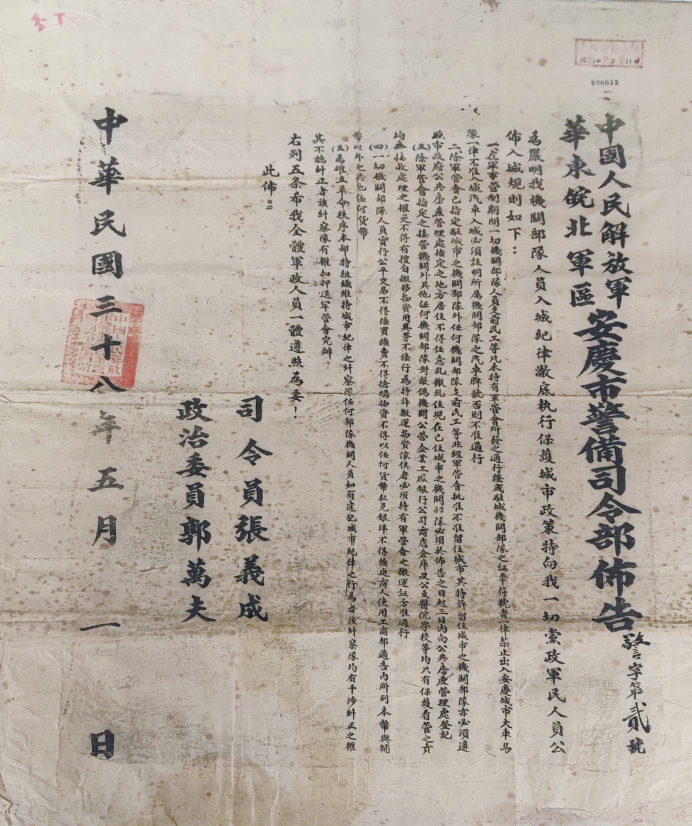 中國人民解放軍
華東皖北軍區
安慶市警備司令部佈告
警字第貳號
為嚴明我機關部隊人員入城紀律澈底執行保護城市政策特向我一切黨政軍民人員公
佈入城規則如下：
一、在軍事管制期間一切機關部隊人員支前民工等凡未持有軍管會所發之通行證或駐城機關部隊之証章符號者一律禁止出入安慶城市大車馬
隊一律不准入城汽車入城必須註明所屬機關部隊之汽車牌號否則不准通行
二、除軍管會已指定駐城市之機關部隊外任何機關部隊支前民工等非經軍管會批准不准留住城市其特許留住城市之機關部隊亦必須遵
照市政府公共房產管理處指定之地方居住不得任意亂搬亂住現在已住城市之機關部隊必須於佈告之日起三日內向公共房產管理處登記
(三)除軍管會指定之接管機關外其他任何機關部隊對敵偽機關公營企業工廠銀行公司商店倉庫及公立醫院學校等均只有保護看管之責
均無接收處理之權更不得有擅自搬移物資用具等不法行為特許搬運物資傢俱者必須持有軍管會之搬運証方准通行
(四)一切機關部隊人員實行公平交易不得強買強賣不得搶購物資不得以任何貨幣私兌銀洋不得強迫商人使用工商部通告內所列本幣與輔
幣以外之其他任何貨幣
(五)為確立革命秩序本部特組織維持城市紀律之糾察隊任何部隊機關人員如有違犯城市紀律之行為者該糾察隊均有干涉糾正之權
其不聽糾正者該糾察隊有權扣押送軍管會究辦
右列五条希我全體軍政人員一體遵照為要！
此佈。
司令員張義成
政治委員郭萬夫
中華民國三十八年五月一日